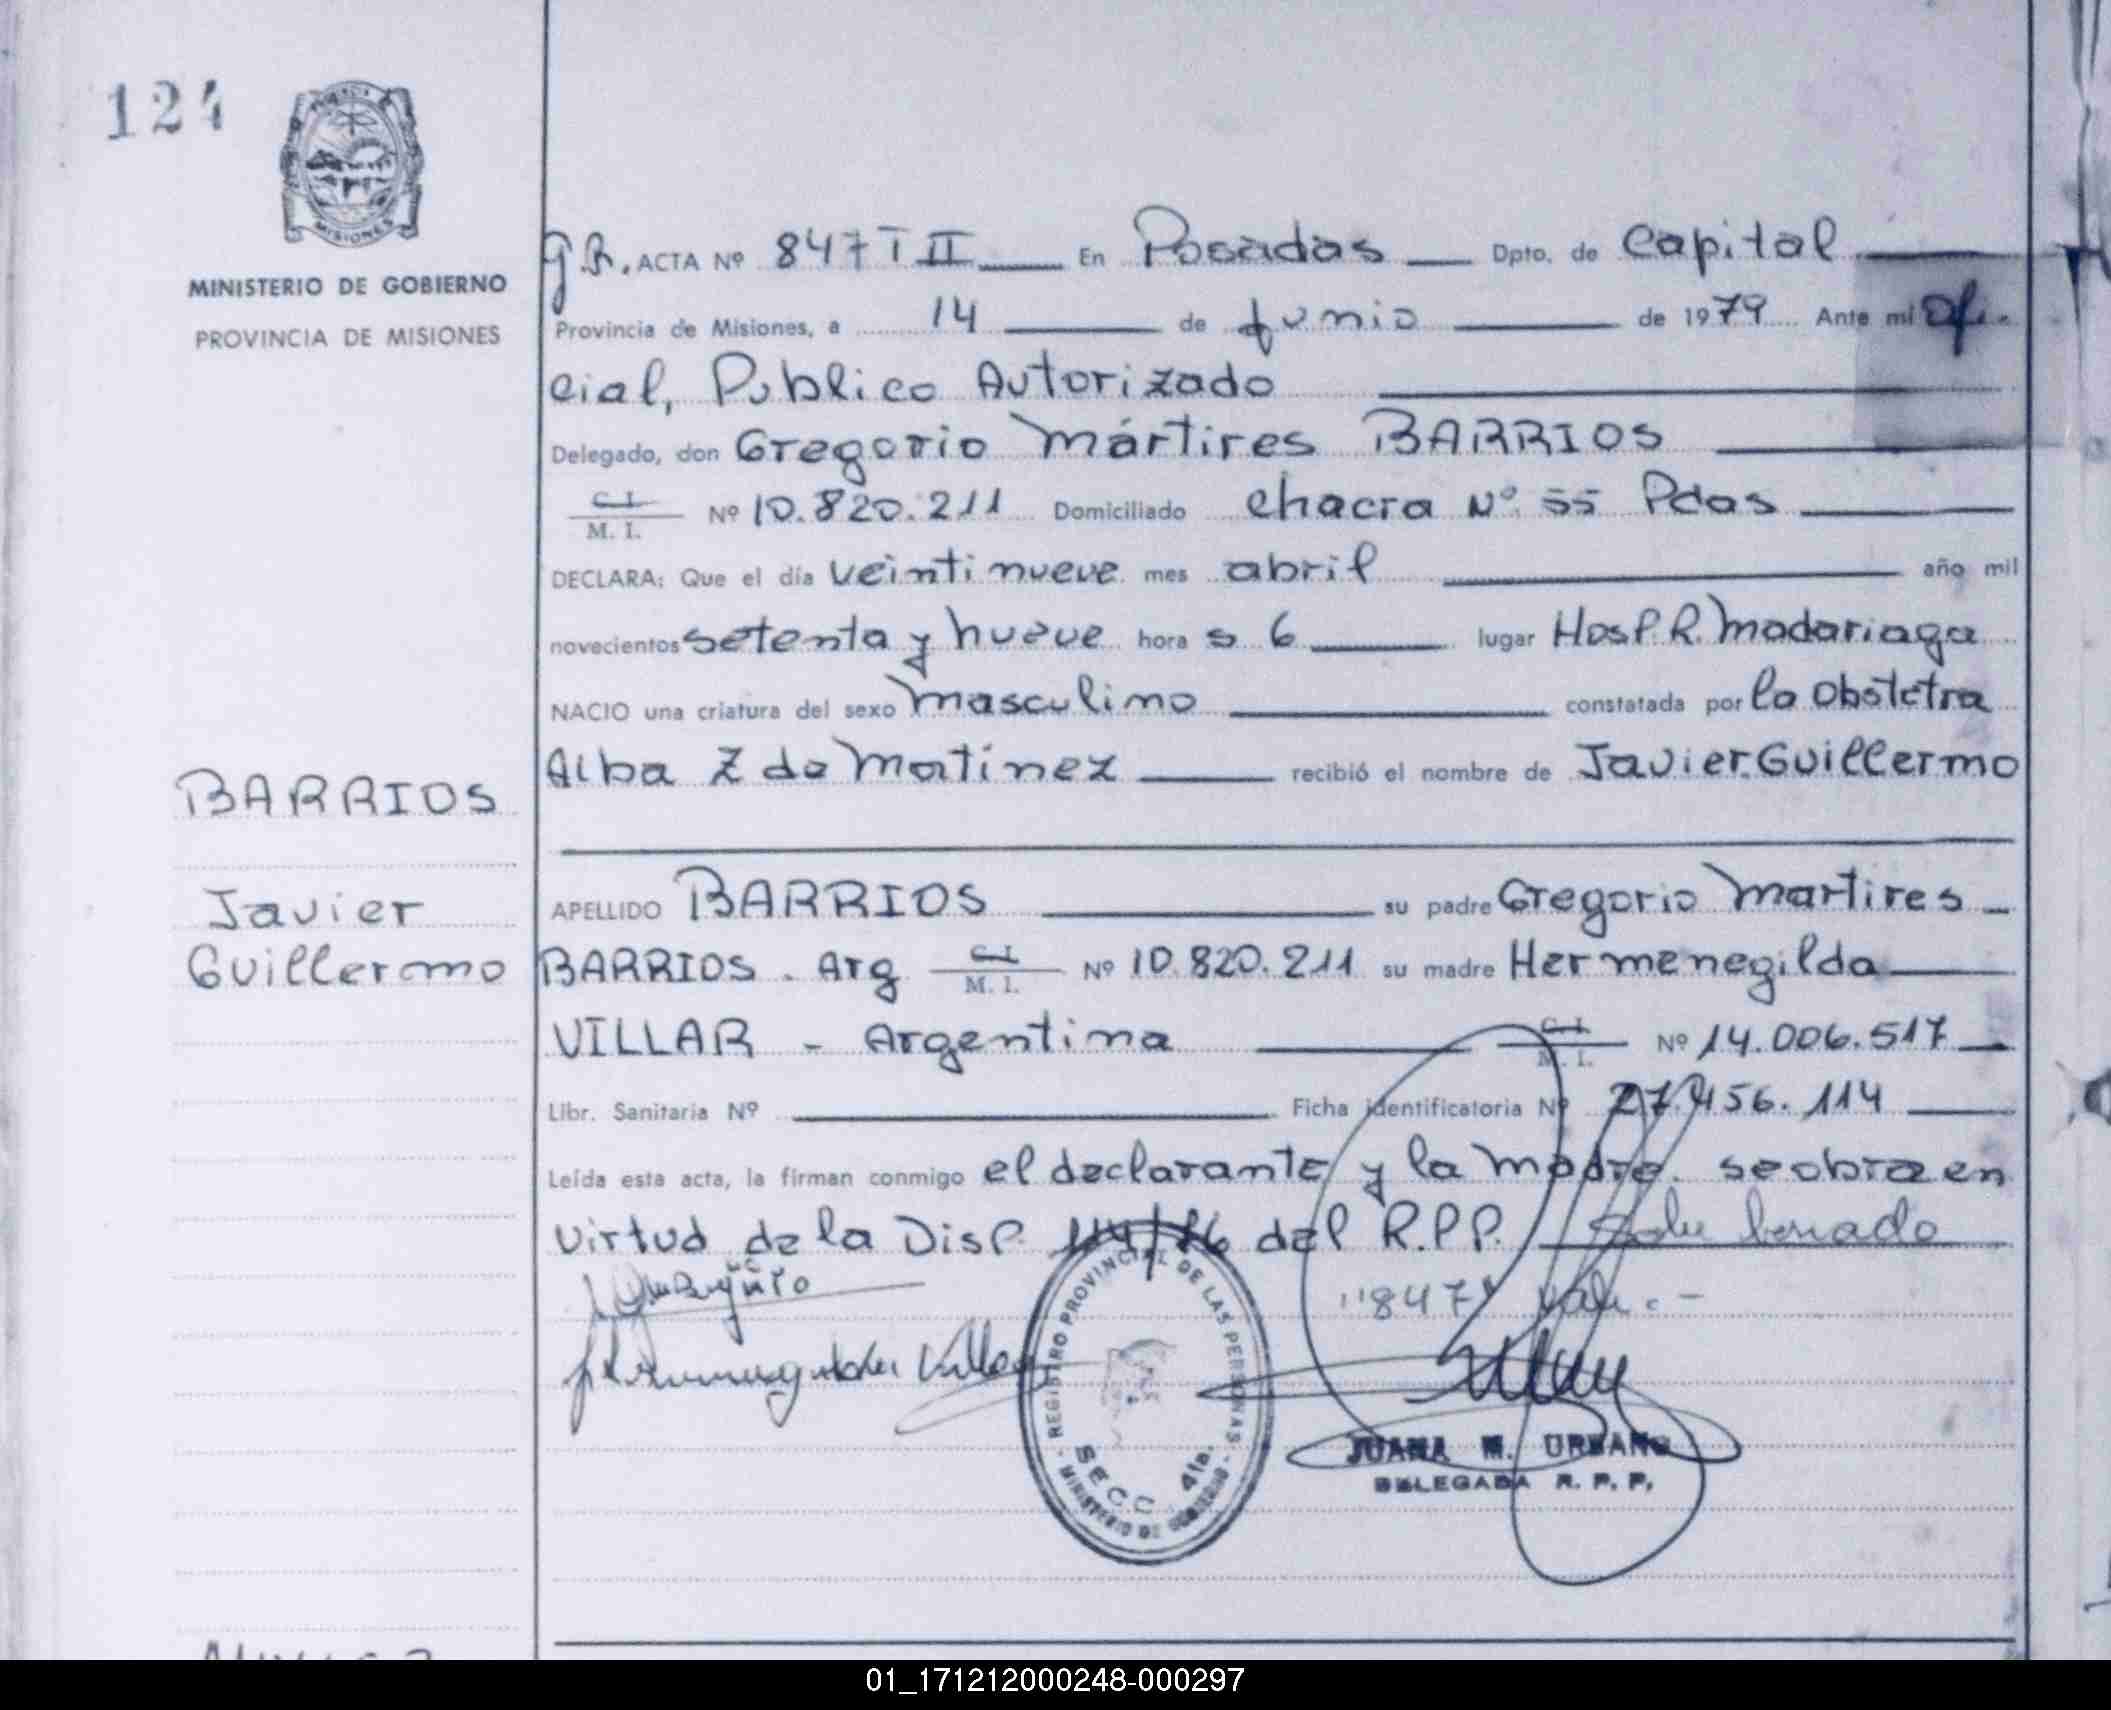 124
MISIONES
MINISTERIO DE GOBIERNO
PROVINCIA DE MISIONES
ACTA Nº 847 T II En Posadas Dpto. de Capital
Provincia de Misiones, a 14 de Junio de 1979 Ante mi Ofi-
cial, Publico Autorizado
Delegado, don Gregorio Mártires BARRIOS
C. I.
M. I. Nº 10.820.211 Domiciliado chacra Nº 55 Pdas
DECLARA: Que el día veintinueve mes abril año mil
novecientos setenta y nueve hora s 6 lugar Hosp. R. Madariaga
NACIO una criatura del sexo masculino constatada por la Obstetra
Alba Z de Matinez recibió el nombre de Javier Guillermo
BARRIOS
Javier
Guillermo
APELLIDO BARRIOS su padre Gregorio Martires
BARRIOS - Arg C. I. M. I. Nº 10.820.211 su madre Hermenegilda
VILLAR - Argentina C. I. M. I. Nº 14.006.517
Libr. Sanitaria Nº Ficha identificatoria Nº 27.456.114
Leída esta acta, la firman conmigo el declarante y la madre. se obra en
virtud de la Disp. 114/76 del R.P.P. Sobre borrado
"847" Vale.-
Hermenegilda Villar
REGISTRO PROVINCIAL DE LAS PERSONAS
SECC 4ta.
MINISTERIO DE GOBIERNO
JUANA M. URBANO
DELEGADA R. P. P.
01_171212000248-000297